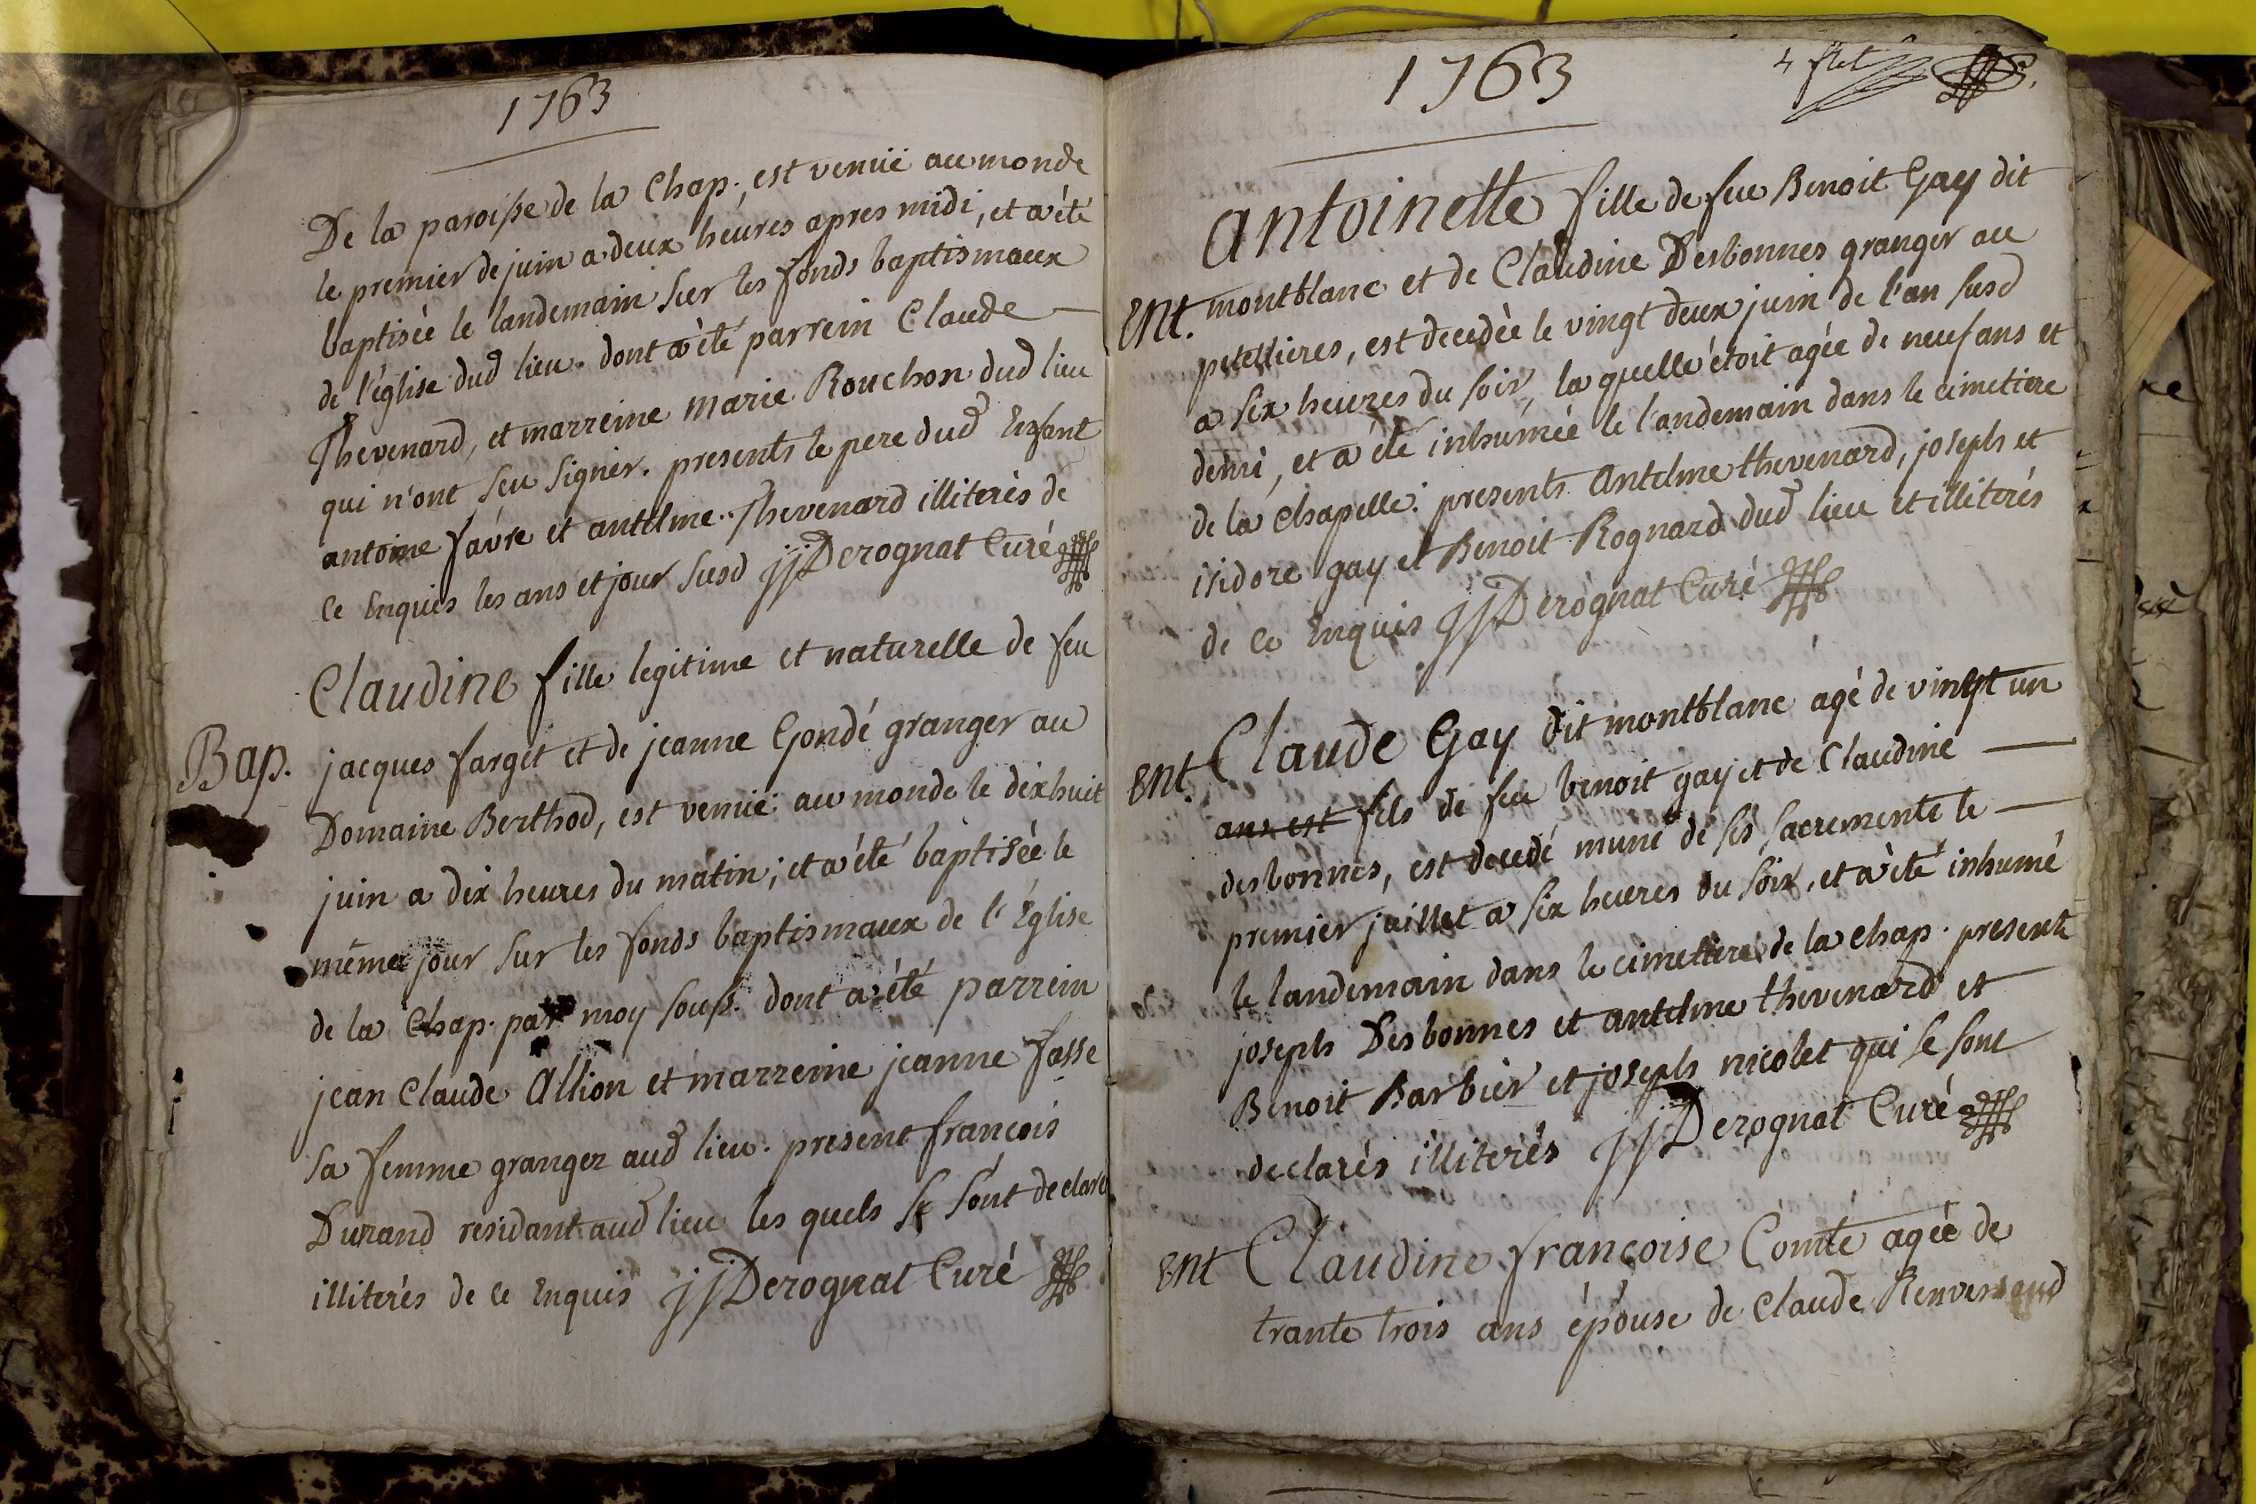 1763
De la paroisse de la Chap., est venuë au monde
le premier de juin a deux heures apres midi, et a été
baptisée le landemain sur les fonds baptismaux
de l'église dud lieu. dont a été parrein Claude
Thevenard, et marreine marie Rouchon dud lieu
qui n'ont seu signer. presents le pere dud Enfant
antoine favre et antelme Thevenard illiterés de
ce Enquis les ans et jour susd jjDerognat Curé
Claudine fille legitime et naturelle de feu
Bap.
jacques farget et de jeanne Gondé granger au
Domaine Berthod, est venuë au monde le dixhuit
juin a dix heures du matin, et a été baptisée le
même jour sur les fonds baptismaux de l'Église
de la Chap. par moy souss. dont a été parrein
jean Claude Allion et marreine jeanne fasse
sa femme granger aud lieu. present françois
Durand residant aud lieu les quels se sont declaré
illiterés de ce Enquis jjDerognat Curé
1763
4
antoinette fille de feu Benoit Gay dit
Ent.
montblanc et de Claudine Desbonnes granger au
petellieres, est decedée le vingt deux juin de l'an susd
a six heures du soir, la quelle étoit agée de neuf ans et
demi, et a été inhumée le landemain dans le cimetiere
de la Chapelle. presents Antelme thevenard, joseph et
isidore gay et Benoit Rognard dud lieu et illiterés
de ce Enquis jjDerognat Curé
Claude Gay dit montblanc agé de vingt un
Ent.
ans est fils de feu benoit gay et de Claudine
desbonnes, est decedé muni de ses sacrements le
premier juillet a six heures du soir, et a été inhumé
le landemain dans le cimettiere de la chap. presents
joseph Desbonnes et antelme thevenard et
Benoit Barbier et joseph nicolet qui se sont
declarés illiterés jjDerognat Curé
Ent Claudine françoise Comte agée de
trante trois ans épouse de Claude